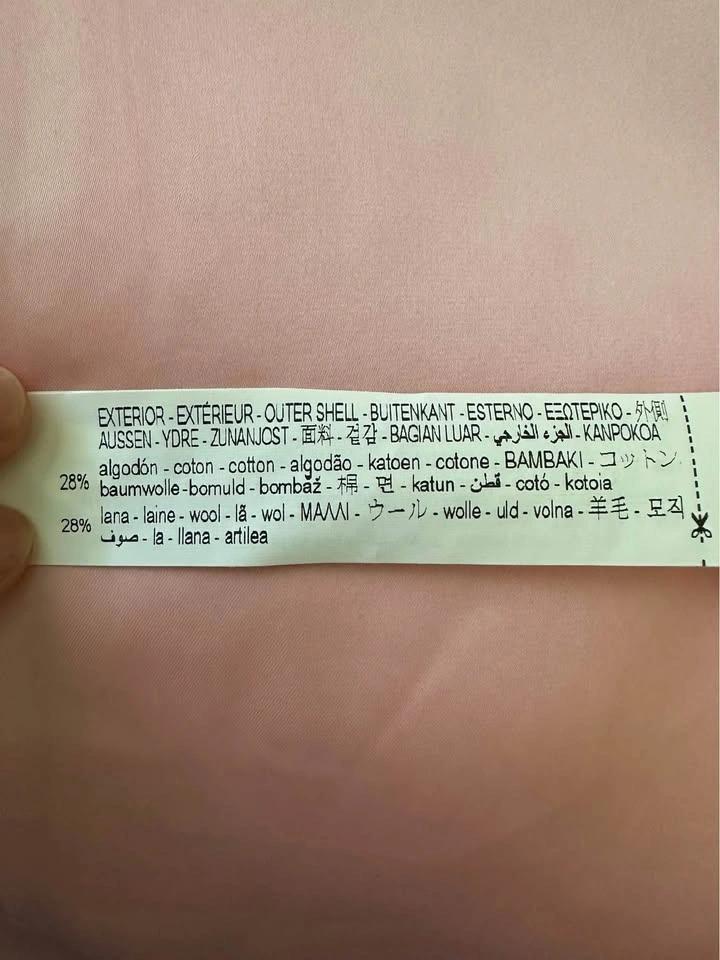 EXTERIOR - EXTÉRIEUR - OUTER SHELL - BUITENKANT - ESTERNO - ΕΞΩΤΕΡΙΚΟ - 外側
AUSSEN - YDRE - ZUNANJOST - 面料 - 겉감 - BAGIAN LUAR - الجزء الخارجي - KANPOKOA
28% algodón - coton - cotton - algodão - katoen - cotone - BAMBAKI - コットン
baumwolle-bomuld - bombaž - 棉 - 면 - katun - قطن - cotó - kotoia
28% lana - laine - wool - lã - wol - ΜΑΛΛΙ - ウール - wolle - uld - volna - 羊毛 - 모직
صوف - la - llana - artilea